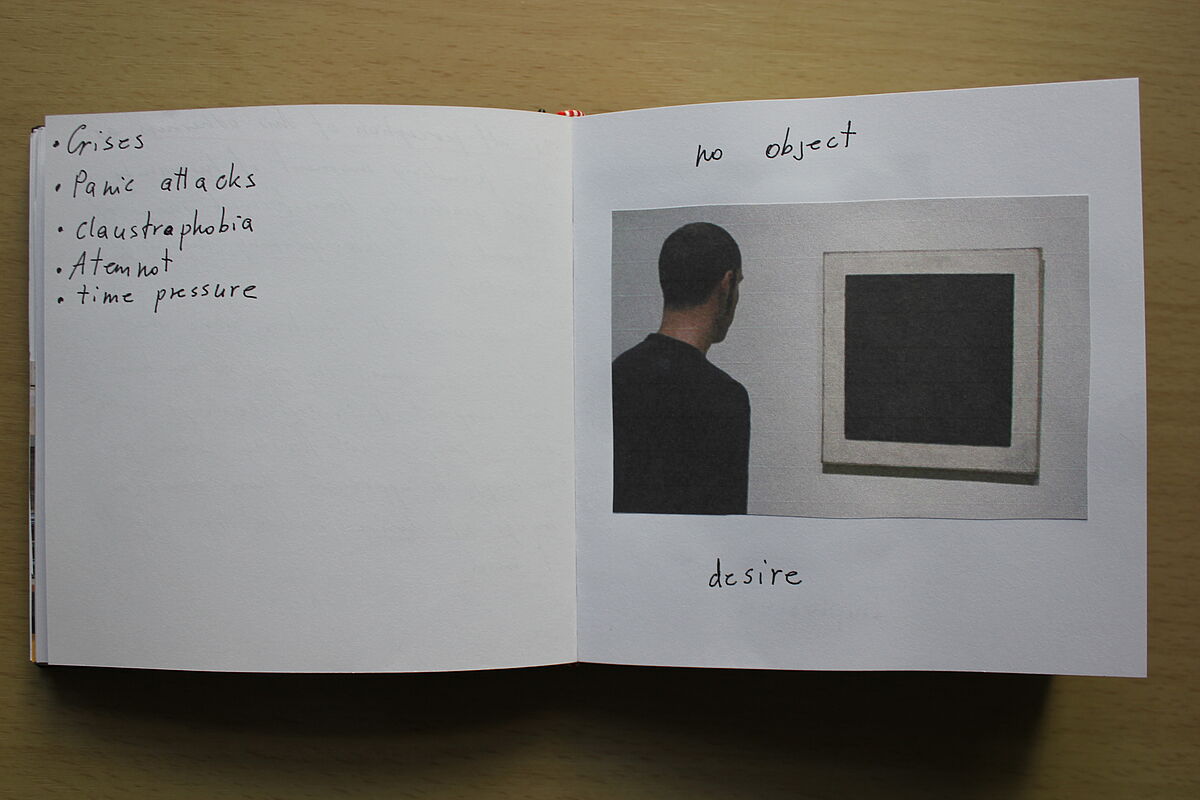 • Crises
• Panic attacks
• claustraphobia
• Atemnot
• time pressure
no object
desire